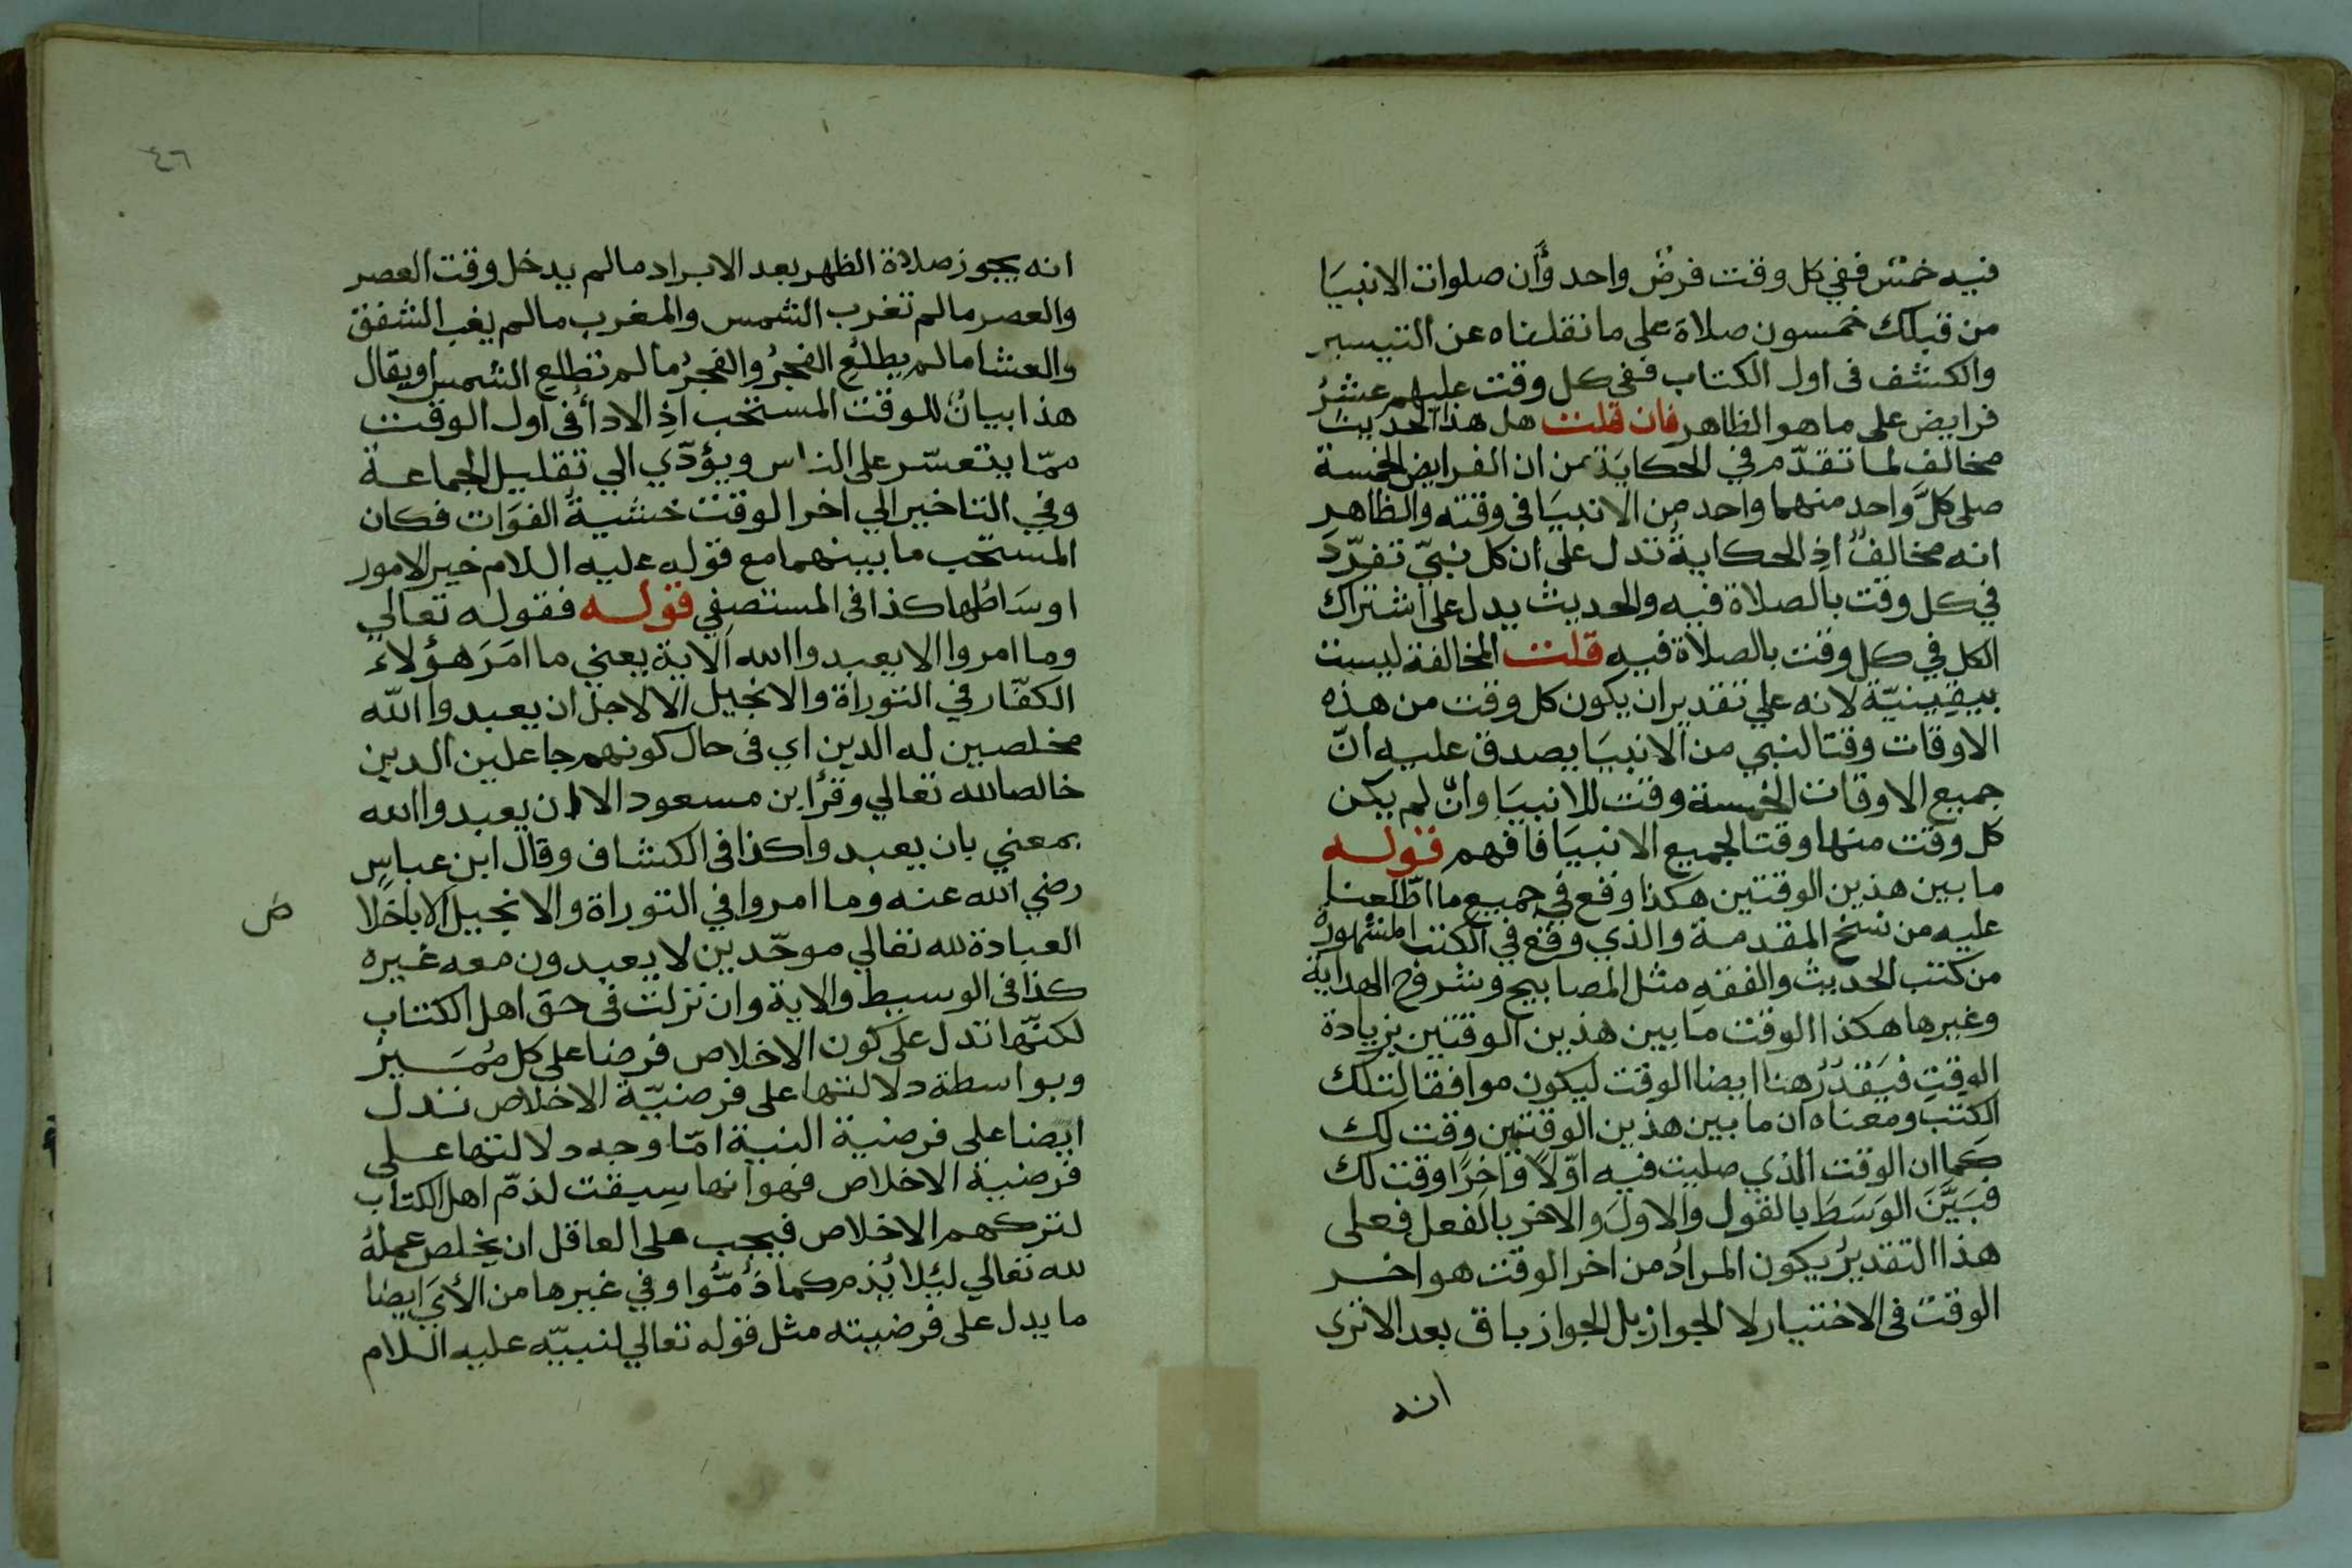 فيه خمس ففي كل وقت فرض واحد وأن صلوات الانبيا
من قبلك خمسون صلاة على ما نقلناه عن التيسير
والكشف فى اول الكتاب ففي كل وقت عليهم عشرُ
فرايض على ما هو الظاهر فان قلت هل هذا الحديث
مخالف لما تقدّم في الحكاية من ان الفرايض الخمسة
صلى كلَّ واحد منهما واحد من الانبيا فى وقته والظاهر
انه مخالفٌ اذِ الحكايةُ تدل على ان كل نبيّ تفرّدَ
في كل وقت بالصلاة فيه والحديث يدل على اشتراك
الكل في كل وقت بالصلاة فيه قلت المخالفة ليست
بيقينيّة لانه علي تقدير ان يكون كل وقت من هذه
الاوقات وقتا لنبي من الانبيَا يصدق عليه انّ
جميع الاوقات الخمسة وقت للانبيَا وان لم يكن
كل وقت منها وقتا لجميع الانبيَا فافهم قوله
ما بين هذين الوقتين هكذا وقع في جميع ما اطّلعنا
عليه من نسخ المقدمة والذي وقع في الكتب المشهورة
من كتب الحديث والفقهِ مثل المصابيح وشروح الهداية
وغيرها هكذا الوقت ما بين هذين الوقتين بزيادة
الوقتِ فيَقدّرُ هنا ايضا الوقت ليكون موافقا لتلك
الكتب ومعناه ان ما بين هذين الوقتين وقت لك
كما ان الوقت الذي صليت فيه اوّلاً واخرًا وقت لك
فبَيَّنَ الوَسَطَ بالقول والاولَ والاخر بالفعل فعلى
هذا التقديرُ يكون المرادُ من اخر الوقت هو اخر
الوقت فى الاختيار لا الجواز بل الجواز باق بعد الا ترى
انه
٤٦
انه يجوز صلاة الظهر بعد الابراد ما لم يدخل وقت العصر
والعصر ما لم تغرب الشمس والمغرب ما لم يغب الشفق
والعشا ما لم يطلعُ الفجرُ والفجرُ ما لم تطلع الشمس او يقال
هذا بيانٌ للوقت المستحب اذِ الاداُ فى اول الوقت
ممّا يتعسّر على الناس ويؤدّي الي تقليل الجماعة
وفي التاخير الي اخر الوقت خشيةُ الفوَات فكان
المستحب ما بينهما مع قوله عليه السلام خير الامور
اوسَاطُها كذا فى المستصفي قوله فقوله تعالي
وما امروا الا ليعبدوا الله الاية يعني ما امَرَ هؤلاء
الكفّار في التوراة والانجيل الا لاجل ان يعبدوا الله
مخلصين له الدين اي فى حال كونهم جاعلين الدين
خالصا لله تعالي وقرأ ابن مسعود الا ان يعبدوا الله
بمعني بان يعبدوا كذا فى الكشاف وقال ابن عباس
رضي الله عنه وما امروا في التوراة والانجيل الا باخلا ص
العبادة لله تعالي موحّدين لا يعبدون معه غيره
كذا فى الوسيط والاية وان نزلت فى حق اهل الكتاب
لكنّها تدل على كون الاخلاص فرضا على كل مُمَيز
وبواسطة دلالتها على فرضيّة الاخلاص تدل
ايضا على فرضية النية امّا وجه دلالتها على
فرضية الاخلاص فهو انها سيقت لذمّ اهل الكتاب
لتركهم الاخلاص فيجب على العاقل ان يخلص عملهُ
لله تعالي لئلا يُذم كما ذُمُّوا وفي غيرها من الأيَ ايضا
ما يدل على فرضيته مثل قوله تعالي لنبيّه عليه السلام